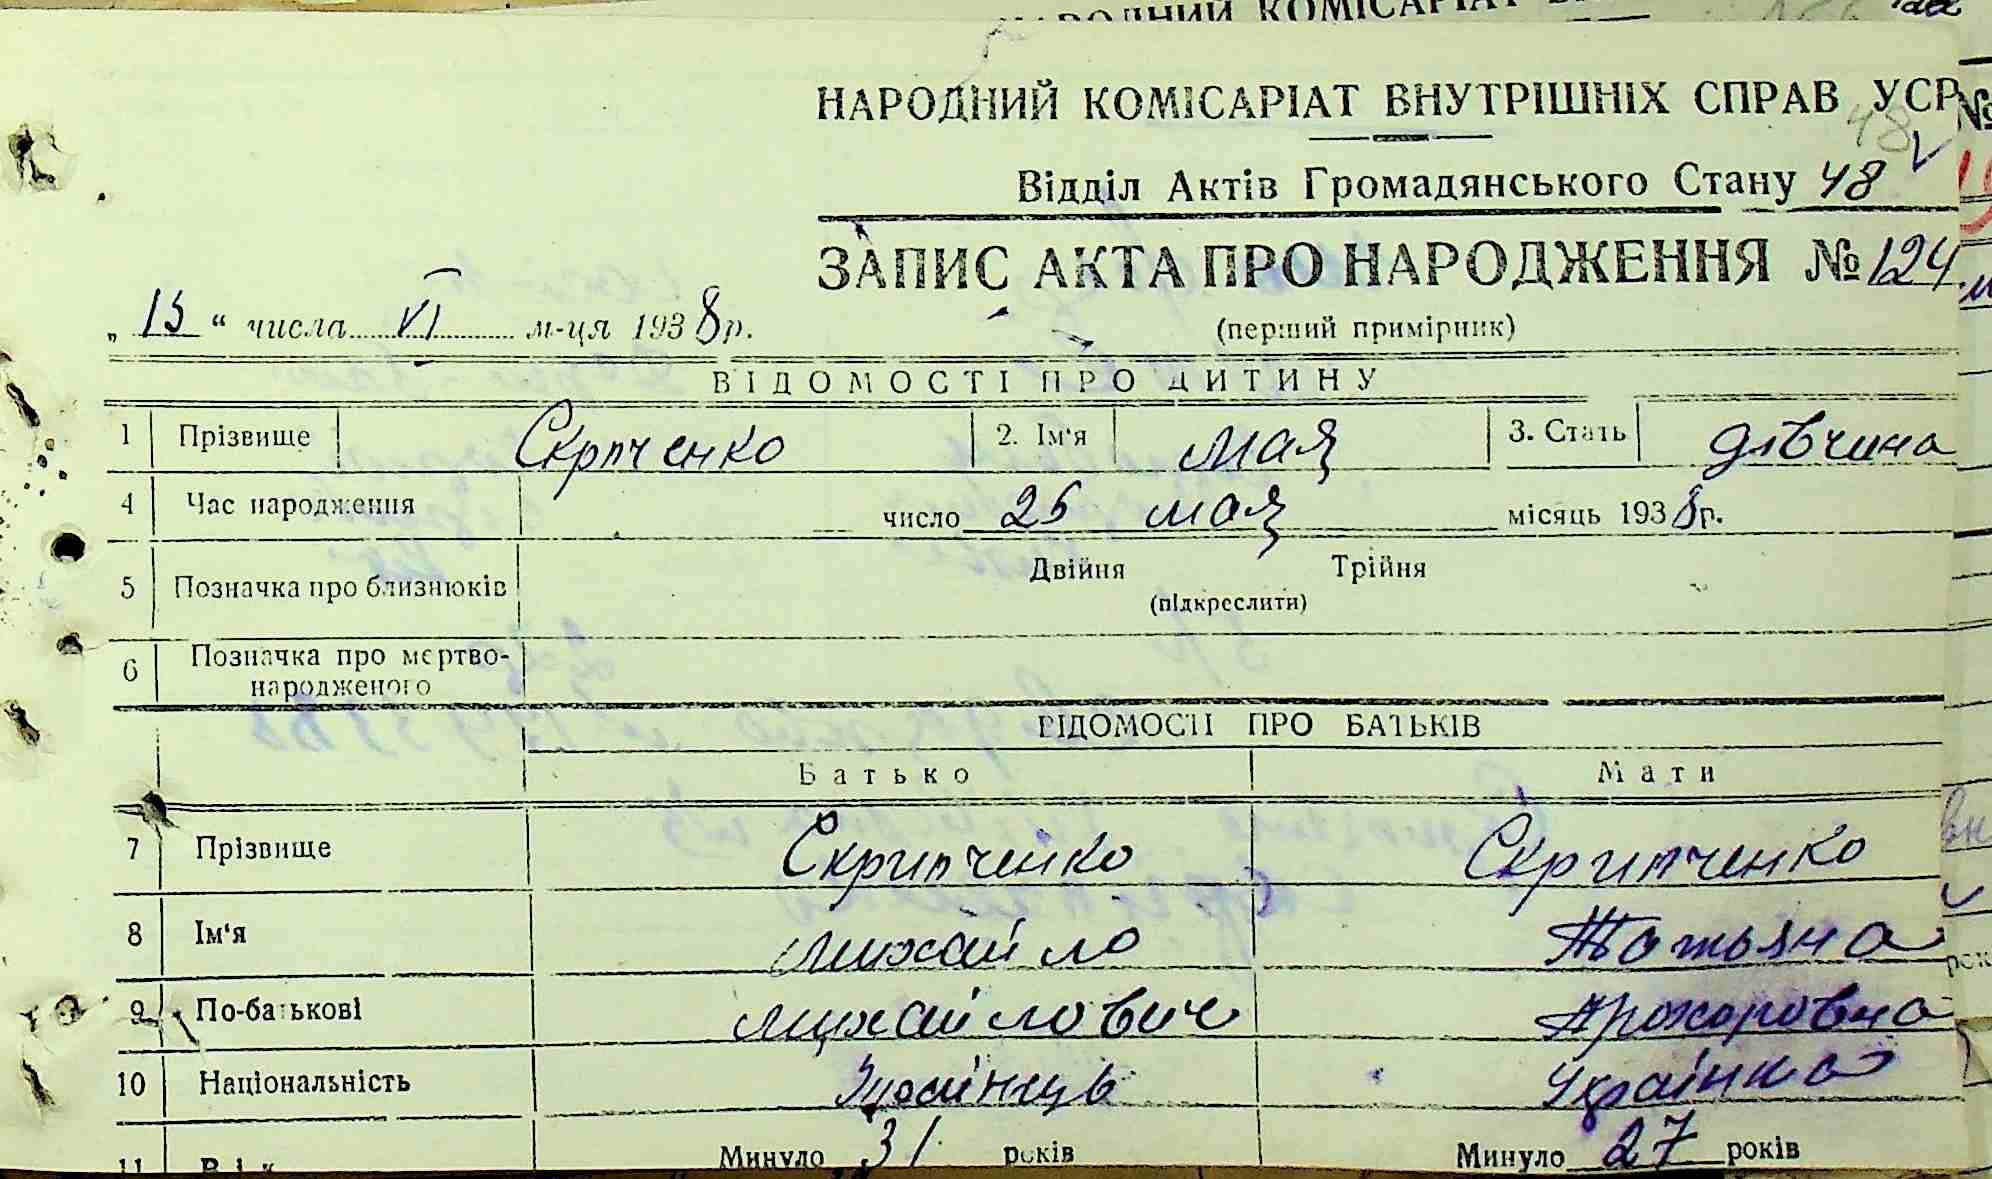 НАРОДНИЙ КОМІСАРІАТ
НАРОДНИЙ КОМІСАРІАТ ВНУТРІШНІХ СПРАВ УСР
48
Відділ Актів Громадянського Стану 48
ЗАПИС АКТА ПРО НАРОДЖЕННЯ № 124
„ 15 “ числа VI м-ця 1938 р.
(перший примірник)
ВІДОМОСТІ ПРО ДИТИНУ
1 Прізвище Скрпченко 2. Ім'я Мая 3. Стать дівчина
4 Час народження число 25 мая місяць 1938 р.
5 Позначка про близнюків Двійня Трійня
(підкреслити)
6 Позначка про мертво-
народженого
ВІДОМОСТІ ПРО БАТЬКІВ
Батько Мати
7 Прізвище Скрипченко Скрипченко
8 Ім'я Михайло Татьяна
9 По-батькові Михайлович Прохоровна
10 Національність Українець Українка
11 Вік Минуло 31 років Минуло 27 років